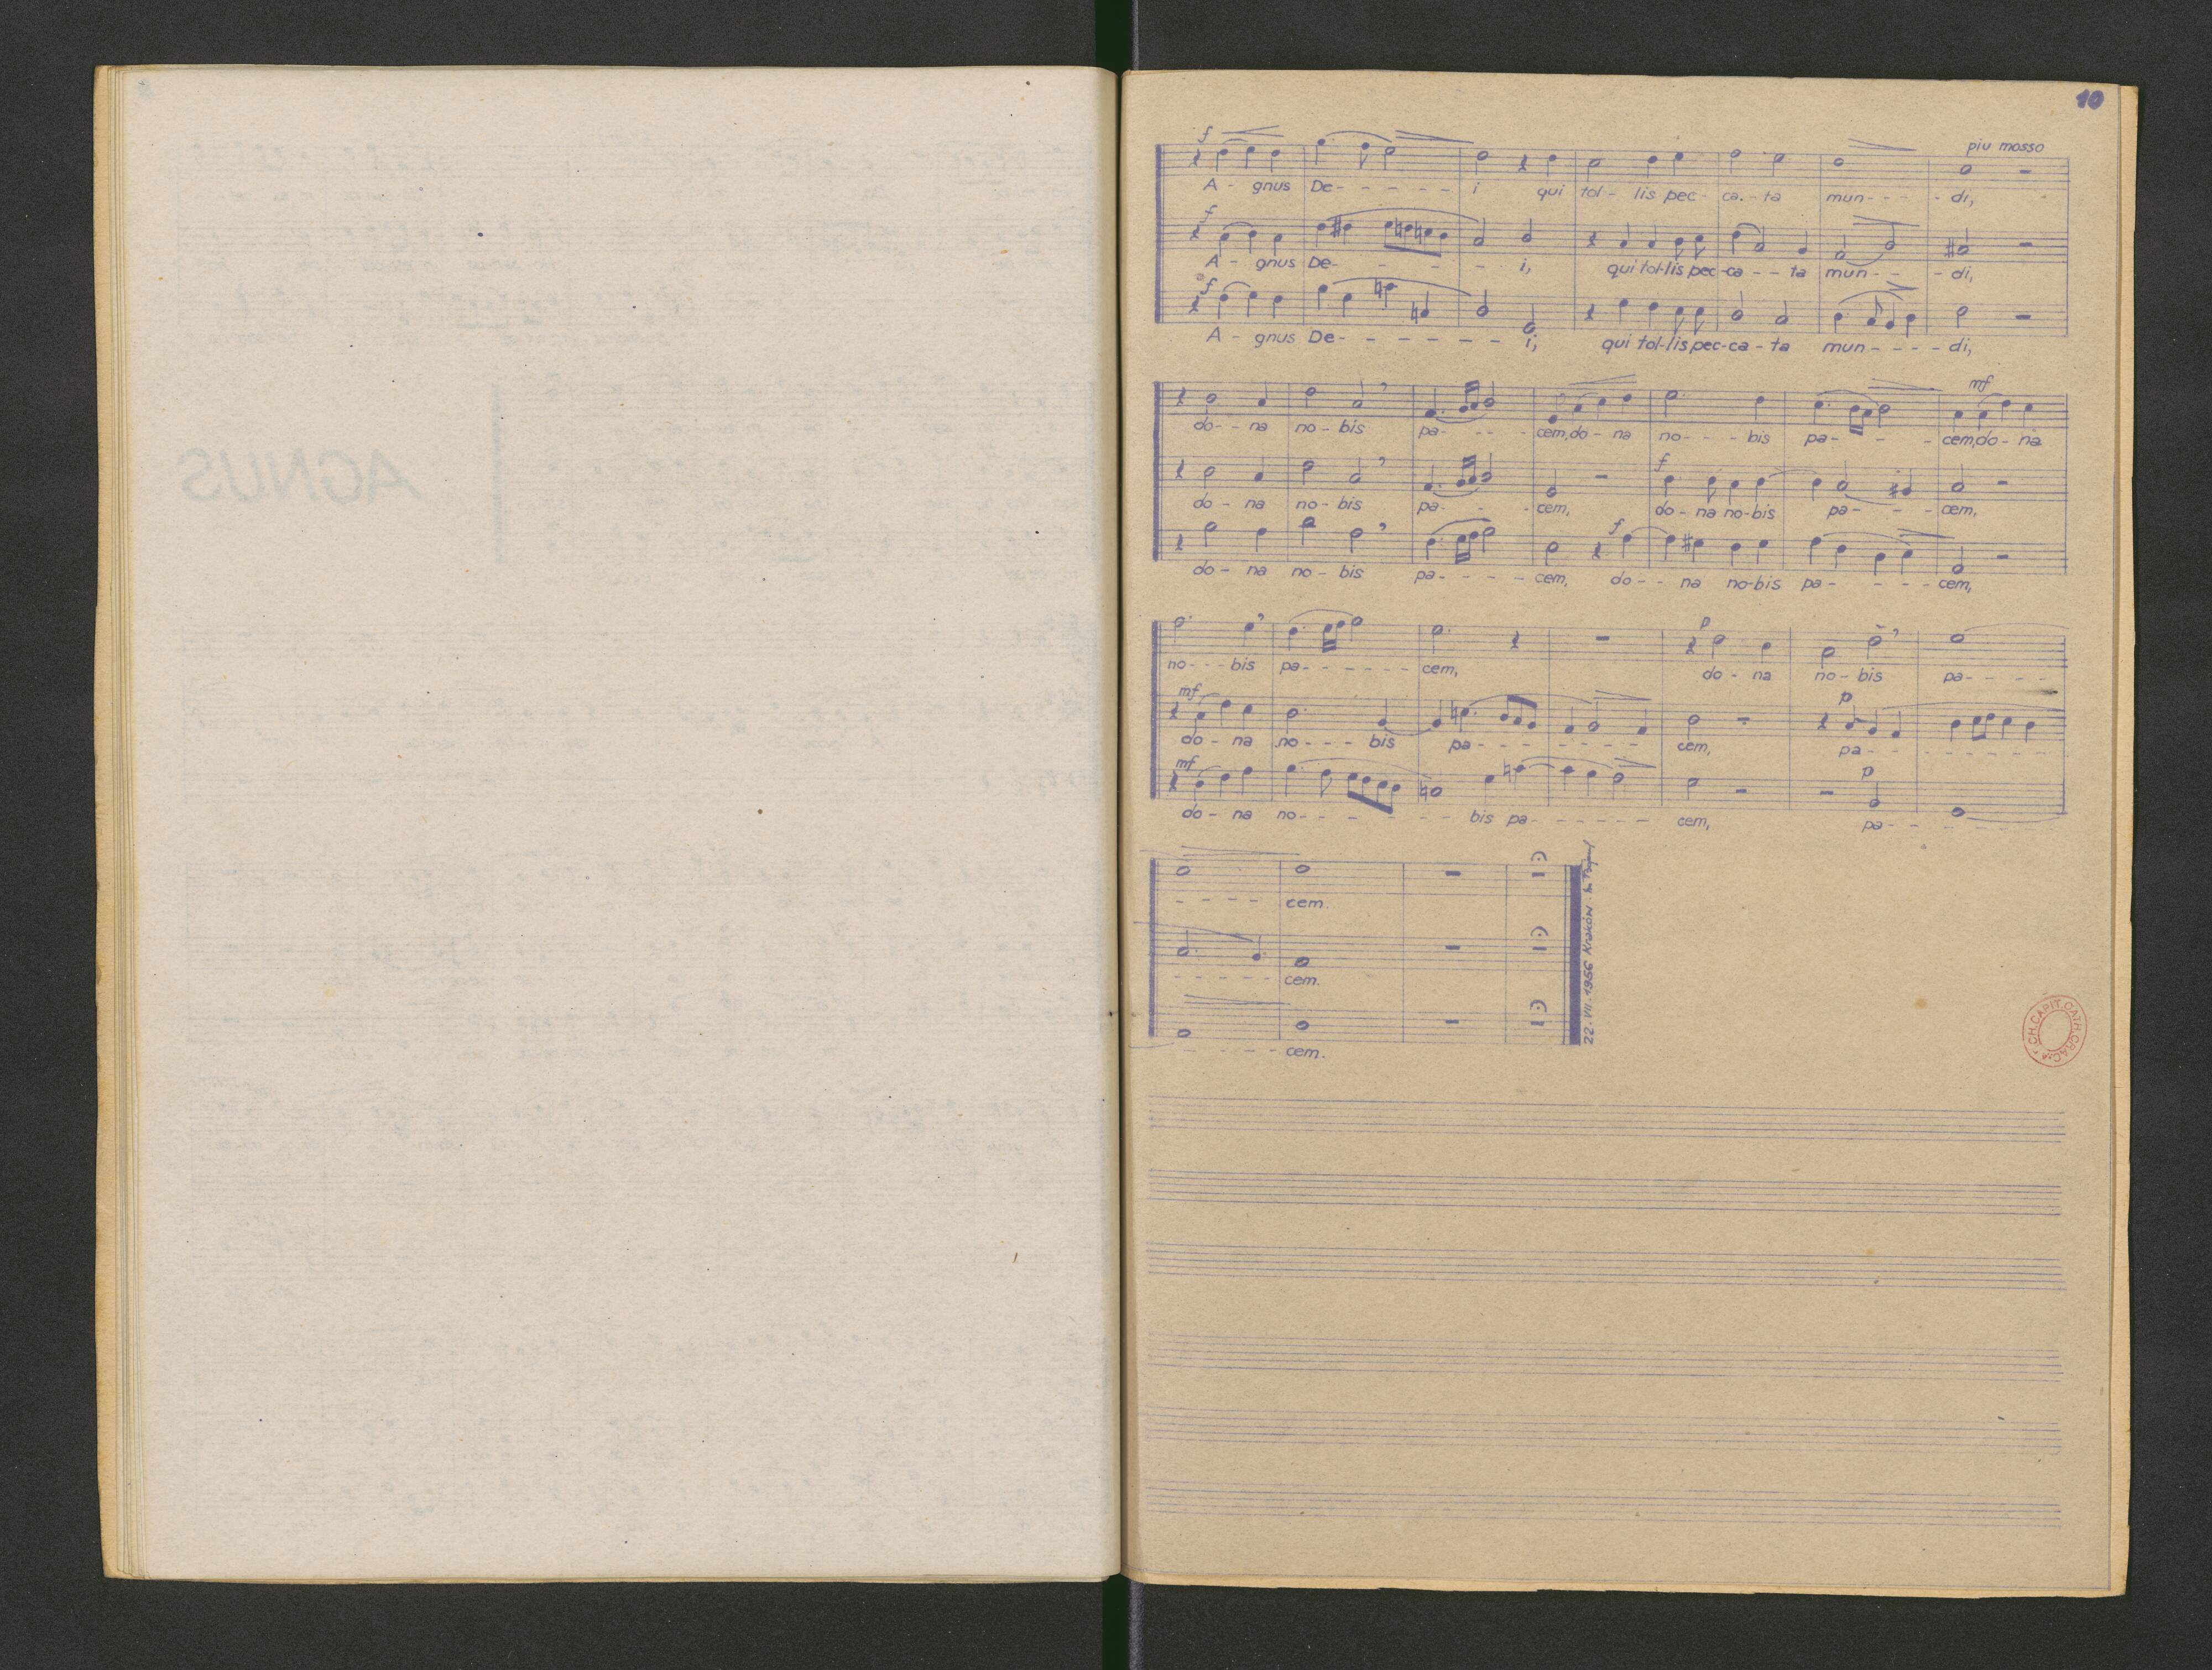 AGNUS
10
f piu mosso
A - gnus De - - - - - i qui tol - lis pec - ca. - ta mun - - - di,
f
A - gnus De - - - - i, qui tol-lis pec-ca - - ta mun - - - di,
f
A - gnus De - - - - - - i, qui tol-lis pec-ca - ta mun - - - - di,
mf
do - - na no - bis pa - - - - cem, do - na no - - - bis pa - - - - cem, do - na
f
do - na no - bis pa - - - cem, do - na no-bis pa - - - cem,
f
do - na no - bis pa - - - - cem, do - - na no-bis pa - - - - cem,
p
no - - - bis pa - - - - - - cem, do - na no - bis pa - - - -
mf p
do - na no - - - bis pa - - - - - - - cem, pa - - - - - - - -
mf p
do - na no - - - - - - bis pa - - - - - - cem, pa - - - - - -
- - - - cem.
- - - - - cem.
- - - - cem.
22. VII. 1956 Kraków.
CH. CAPIT. CATH. CRAC.